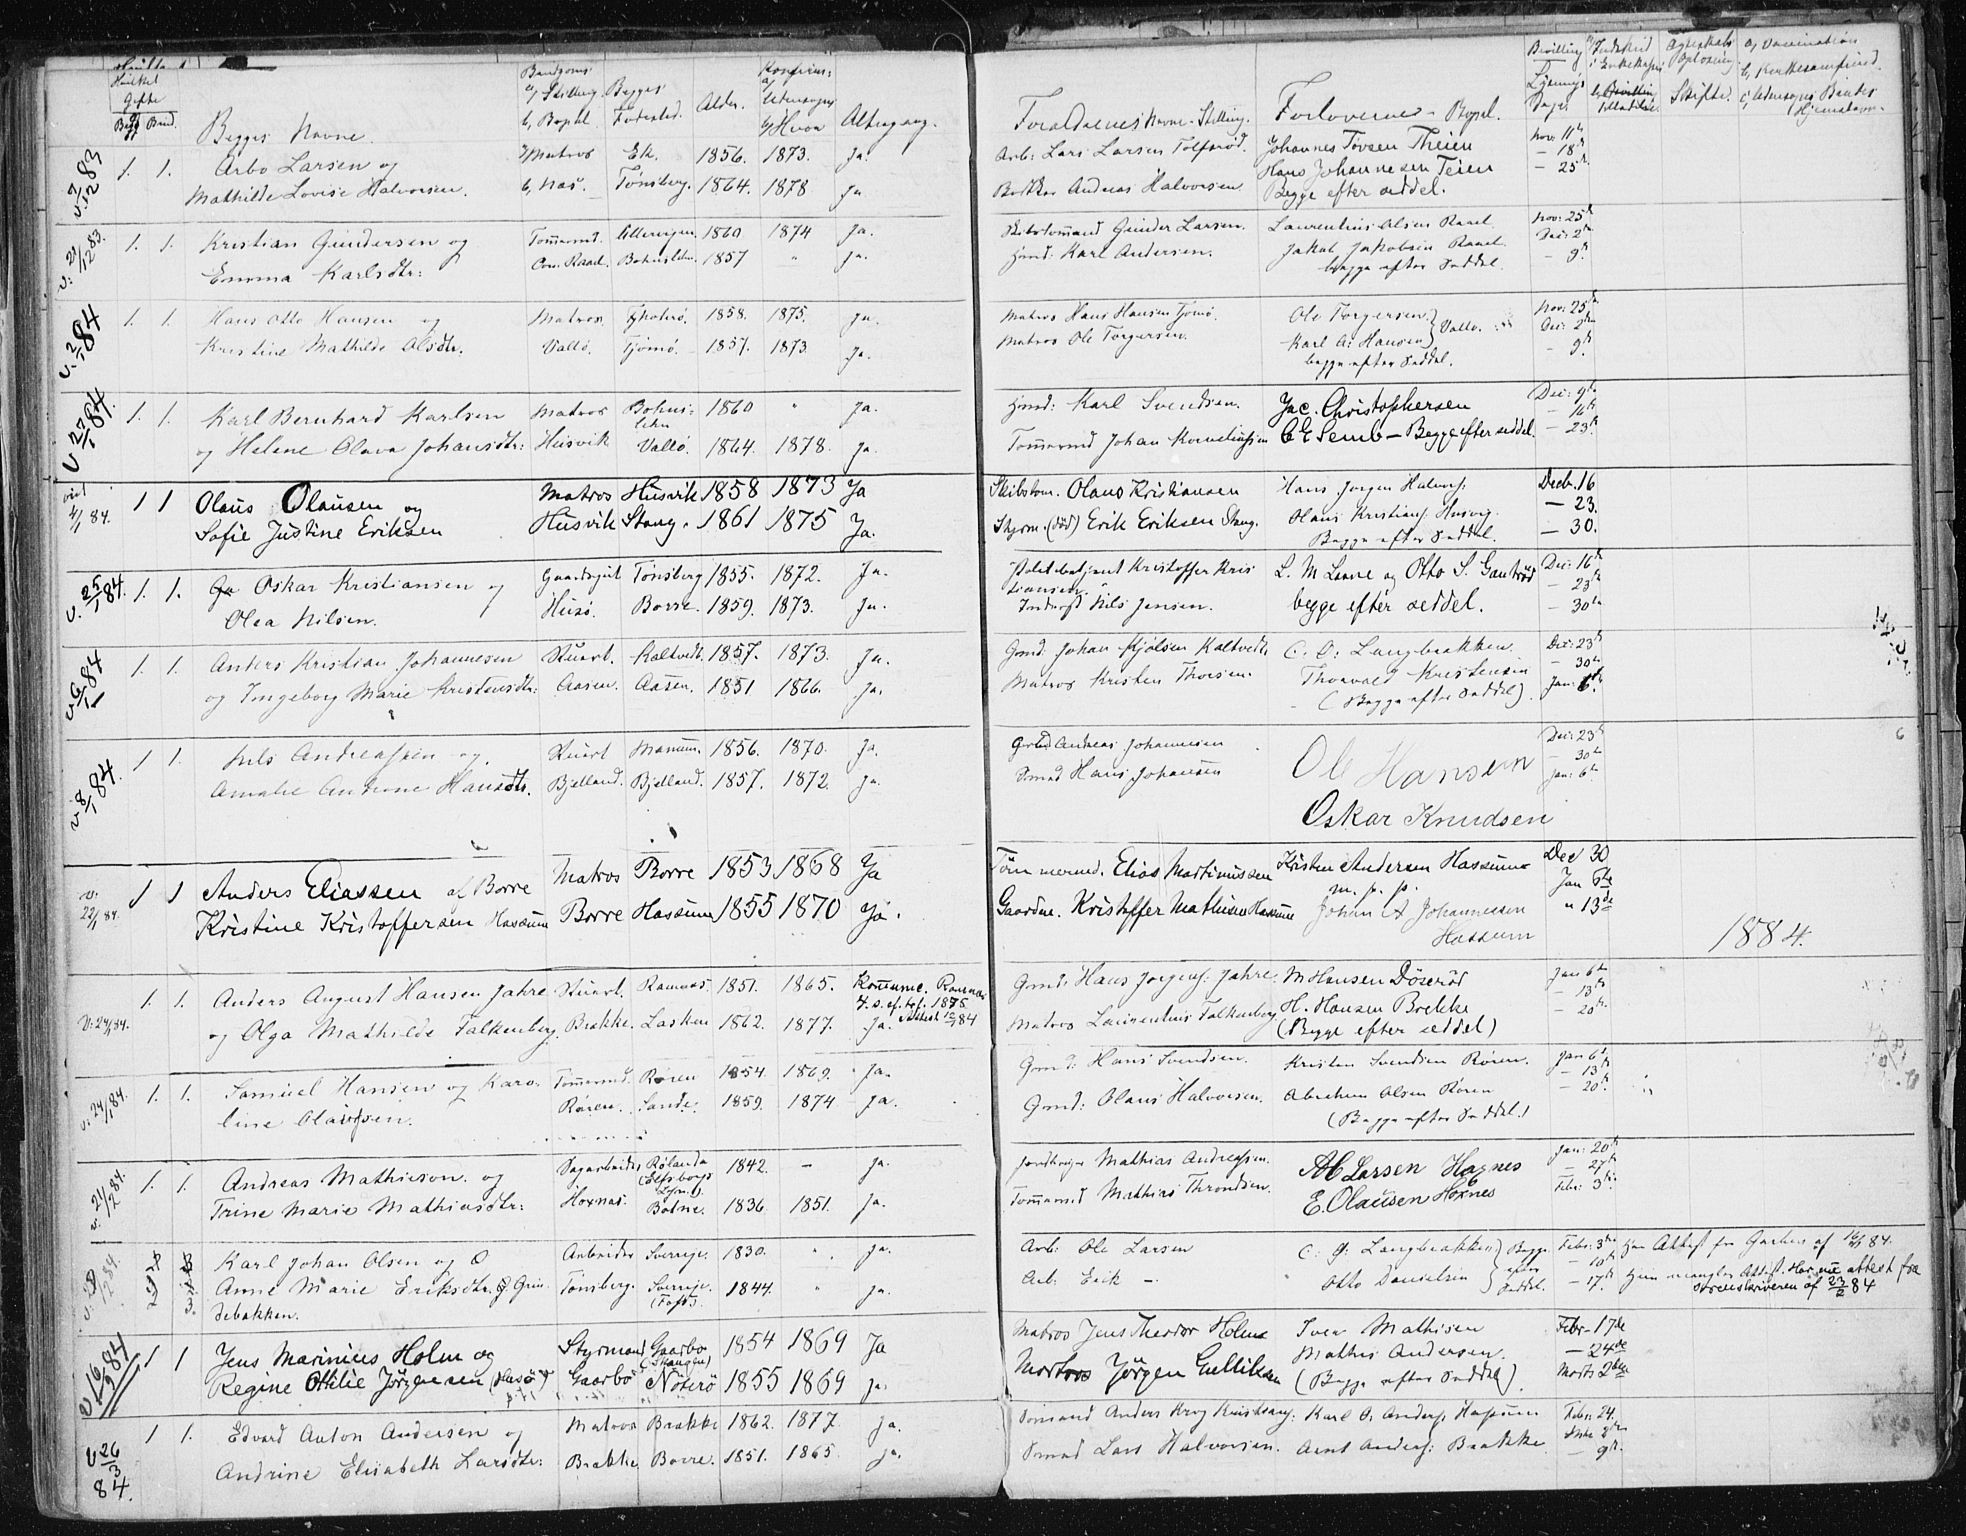 Hvilket
Gifte
Begges Navne.
Brudgoms
a, Stilling
b, Bopæl.
Begges
Fødested.
Alder.
Altergang.
Forældrenes Navne - Stilling.
Forloverne - Bopæl.
Skifte.
v. 7/12 83
1. 1. Arbo Larsen og Matros Ek. 1856. 1873. Ja.
Mathilde Lovise Halvorsen. Tønsberg. 1864. 1878 Ja
Arb: Lars Larsen Tolfsrød. Johannes Tovsen Theien Nov. 11te
Hans Johannesen Teien — 18de
Bødker Andreas Halvorsen Begge efter seddel. — 25de
v: 21/12 83.
1. 1. Kristian Gundersen og 1860 1874 Ja.
Emma Karlsdtr: Raael. 1857 " Ja.
Gunder Larsen. Laurentius Olsen Raael Nov: 25de
Karl Andersen. Jakob Jakobsen Raael Dec: 2den
begge efter Seddel. — 9de
v. 2/1 84
1. 1. Hans Otto Hansen og Matros 1858. 1875. Ja.
Kristine Mathilde Olsdtr. Vallø. Tjømø. 1857. 1873. Ja.
Matros Hans Hansen Tjømø. Ole Torgersen Nov: 25de
Matros Ole Torgersen. Karl A: Hansen Vallø. Dec: 2den
begge efter Seddel. — 9de
v 27/1 84.
1. 1. Karl Bernhard Karlsen Matros Bohuslehn 1860 " Ja.
og Helene Olava Johansdtr: Husvik Vallø. 1864. 1878. Ja.
Karl Svendsen. Jac. Christophersen Dec: 9de
— 16de
Tømmermd Johan Korneliussen C E Semb — Begge efter seddel. — 23de
4/1 84.
1 1 Olaus Olausen og Matros Husvik 1858 1873 Ja
Sofie Justine Eriksen Husvik Stang. 1861 1875 Ja.
Skibstom. Olaus Kristiansen Hans Jørgen Halvors. Decb. 16
Olaus Kristians. Husvig. — 23.
Styrm. (død) Erik Eriksen Stang. Begge efter Seddel. — 30.
v. 25/1 84.
1. 1. Oskar Kristiansen og Gaardsgut Tønsberg 1855. 1872. Ja.
Olea Nilsen. Husø. Borre. 1859. 1873. Ja.
Politibetjent Kristoffer Kristiansen L. M Lanne og Otto S. Gautrød Dec: 16de
— 23de
Nils Jensen. begge efter seddel. — 30te
v. 6/1 84
1. 1. Anders Kristian Johannesen Stuert. Kaltvedt. 1857. 1873. Ja.
og Ingeborg Marie Kristensdtr: Aasen. Aasen. 1851 1866. Ja.
Grmd. Johan Kjølsen Kaltvedt. C. O: Langbrækken Dec: 23de
— 30te
Matros Kristen Thorsen. Thorvald Kristensen Jan: 6te
(Begge efter Seddel).
v. 8/1 84.
1 1. Nils Andreassen og Stuert 1856. 1870. Ja.
Amalie Antone Hansdtr. Bjelland. Bjelland. 1857. 1872. Ja.
Andreas Johannesen Ole Hansen Dec: 23de
— 30te
Hans Johansen Jan: 6te
Oskar Knudsen
v: 22/1 84.
1 1 Anders Eliassen af Borre Matros Borre 1853 1868 Ja
Kristine Kristoffersen Hassum Borre Hassum 1855 1870 Ja.
Tømmermd. Elias Martinussen Kristen Andersen Hassum Dec 30
m. p. p. Jan 6te
Gaardm. Kristoffer Mathisen Hassum Johan A Johannessen " 13de
Hassum
1884.
v: 24/1 84.
1. 1. Anders August Hansen Jahre Stuert. Ramnæs. 1851. 1865. Komune. Ramnæs
4. s. ef. tgf. 1875
og Olga Mathilde Falkenberg Brække. Lasken 1862. 1877. Ja. Attest 12/1 84
Grmd: Hans Jørgens. Jahre. M Hansen Døserød Jan 6te
— 13de
Matros Laurentius Falkenberg H. Hansen Brekke — 20de
(Begge efter seddel)
v: 24/1 84.
1. 1. Samuel Hansen og Karo- Tømmermd. Røren 1854. 1869. Ja.
line Olausen. Røren. Sande. 1859. 1874 Ja.
Grmd: Hans Svendsen. Kristen Svendsen Røren. Jan 6te
— 13de
Grmd: Olaus Halvorsen. Abraham Olsen Røren — 20de
(Begge efter Seddel.)
v. 21/2 84.
1. 1. Andreas Mathieson. og Sagarbeider Rølanda 1842. — Ja.
(Elfsborgs
Trine Marie Mathiasdtr: Hoxnæs. Botne. 1836. 1851. Ja.
Mathias Andreassen. A C Larsen Haxnes Jan: 20de
— 27de
Tømmermd Mathias Throndsen. E. Olausen Hoxnes Febr: 3die
Karl Johan Olsen og Arbeider Sverrige. 1830. " Ja.
Anne Marie Eriksdtr. Grin- Tønsberg. Sverrige. 1844. " Ja.
debakken.
Arb: Ole Larsen C: G: Langbrækken Begge Febr: 3die
efter — 10de
Arb: Erik — Otto Danielsen Seddel. — 17de
Han Attest fra Garben af 16/1 84.
Hun mangler Attest. Har nu attest fra
sorenskriveren af 23/2 84
v 16/3 84
1 1 Jens Marinius Holm og Styrmand Gaarbo 1854 1869 Ja
Regine Otilie Jørgensen (Husø) Gaarbo Nøterø 1855 1869 Ja.
Matros Jens Theodor Holm Iver Mathisen Febr. 17de
Mathis Andersen. — 24de
Matros Jörgen Gulliksen (Begge efter Seddel). Marts 2den
v 26/3 84.
1 1. Edvard Anton Andersen og Matros Brække 1862. 1877. Ja.
Andrine Elisabeth Larsdtr: Brække Borre. 1851. 1865. Ja.
Sømand Anders Krog Kristians: Karl A. Anders. Hassum Febr: 24.
Sømd Lars Halvorsen. Arnt Anders: Brække — 9de